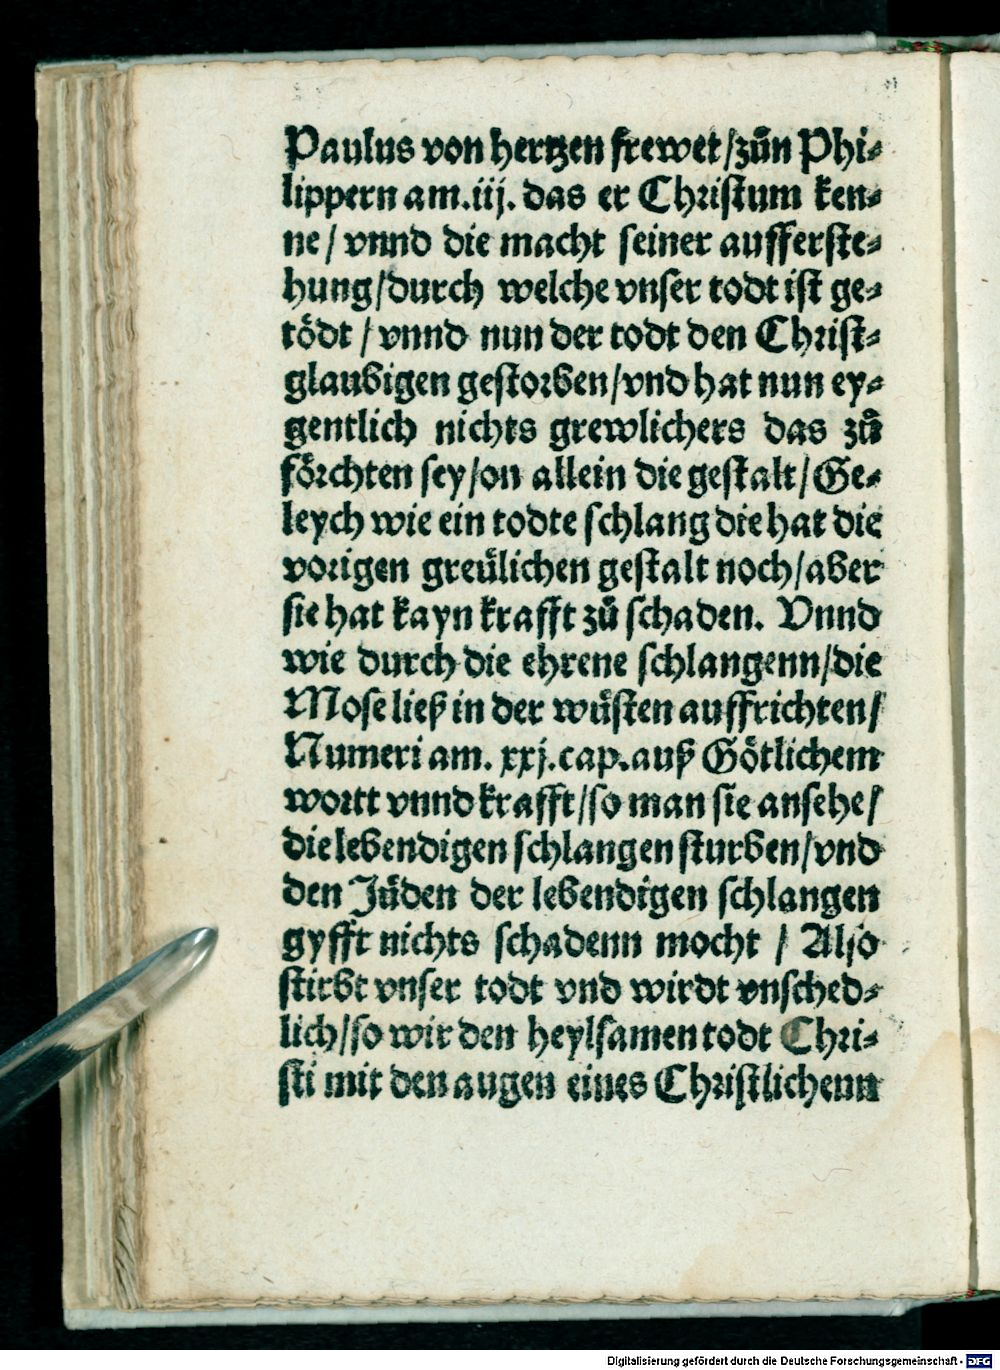 Paulus von hertzen frewet/zůn Phi⸗
lippern am.iij. das er Christum ken⸗
ne/ vnnd die macht seiner aufferste⸗
hung/durch welche vnser todt ist ge⸗
tödt/ vnnd nun der todt den Christ⸗
glaubigen gestorben/vnd hat nun ey⸗
gentlich nichts grewlichers das zů
förchten sey/on allein die gestalt/Ge⸗
leych wie ein todte schlang die hat die
vorigen greülichen gestalt noch/aber
sie hat kayn krafft zů schaden. Vnnd
wie durch die ehrene schlangenn/die
Mose ließ in der wüsten auffrichten/
Numeri am. xxj.cap.auß Götlichem
wortt vnnd krafft/so man sie ansehe/
die lebendigen schlangen sturben/vnd
den Jüden der lebendigen schlangen
gyfft nichts schadenn mocht / Also
stirbt vnser todt vnd wirdt vnsched⸗
lich/so wir den heylsamen todt Chri⸗
sti mit den augen eines Christlichenn
Digitalisierung gefördert durch die Deutsche Forschungsgemeinschaft - DFG